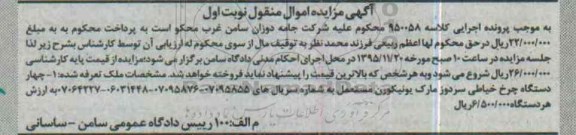 آگهی مزایده اموال منقول نوبت اول
به موجب پرونده اجرایی کلاسه ۹۵۰۰۵۸ محکوم علیه شرکت جامه دوزان سامن غرب محکو است به پرداخت محکوم به به مبلغ
۲۲/۰۰۰/۰۰۰ریال در حق محکوم لها اعظم ربیعی فرزند محمد نظر به توقیف مال از سوی محکوم له ارزیابی آن توسط کارشناس بشرح زیر لذا
جلسه مزایده در ساعت ۱۰ صبح مورخه ۱۳۹۵/۱۱/۲۰ در محل اجرای احکام مدنی دادگاه سامن برگزار می شود؛مزایده از قیمت پایه کارشناسی
۲۶/۰۰۰/۰۰۰ریال شروع می شود وبه هرشخص که بالاترین قیمت را پیشنهاد نماید فروخته خواهد شد. مشخصات ملک تعرفه شده: ۱-چهار
دستگاه چرخ خیاطی سردوز مارک یونیکورن مستعمل به شماره سریال های ۰۷۰۹۵۸۵۵-۰۷۰۹۵۸۷۶-۰۶۰۳۱۴۴۸-۰۷۰۶۴۲۲۷به ارزش
هردستگاه۶/۵۰۰/۰۰۰ریال
م الف:۱۰۰ رییس دادگاه عمومی سامن - ساسانی